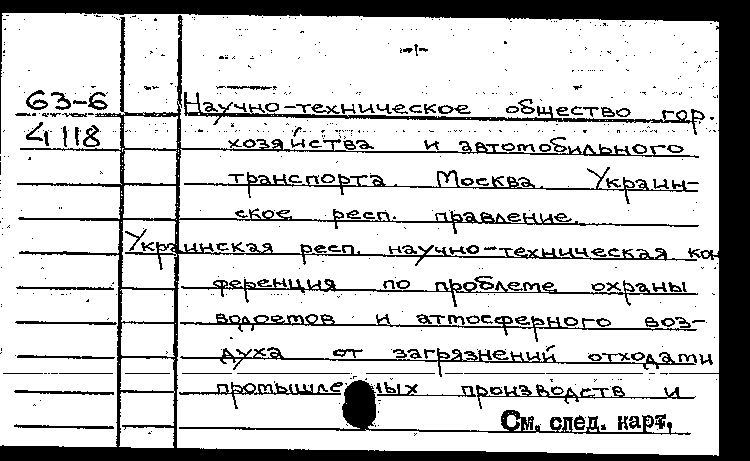 -1-
63-6 Научно-техническое общество гор.
4118 хозяйства и автомобильного
транспорта. Москва. Украин-
ское респ. правление.
Украинская респ. научно-техническая кон
ференция по проблеме охраны
водоемов и атмосферного воз-
духа от загрязнений отходами
промышленных производств и
См. след. карт.